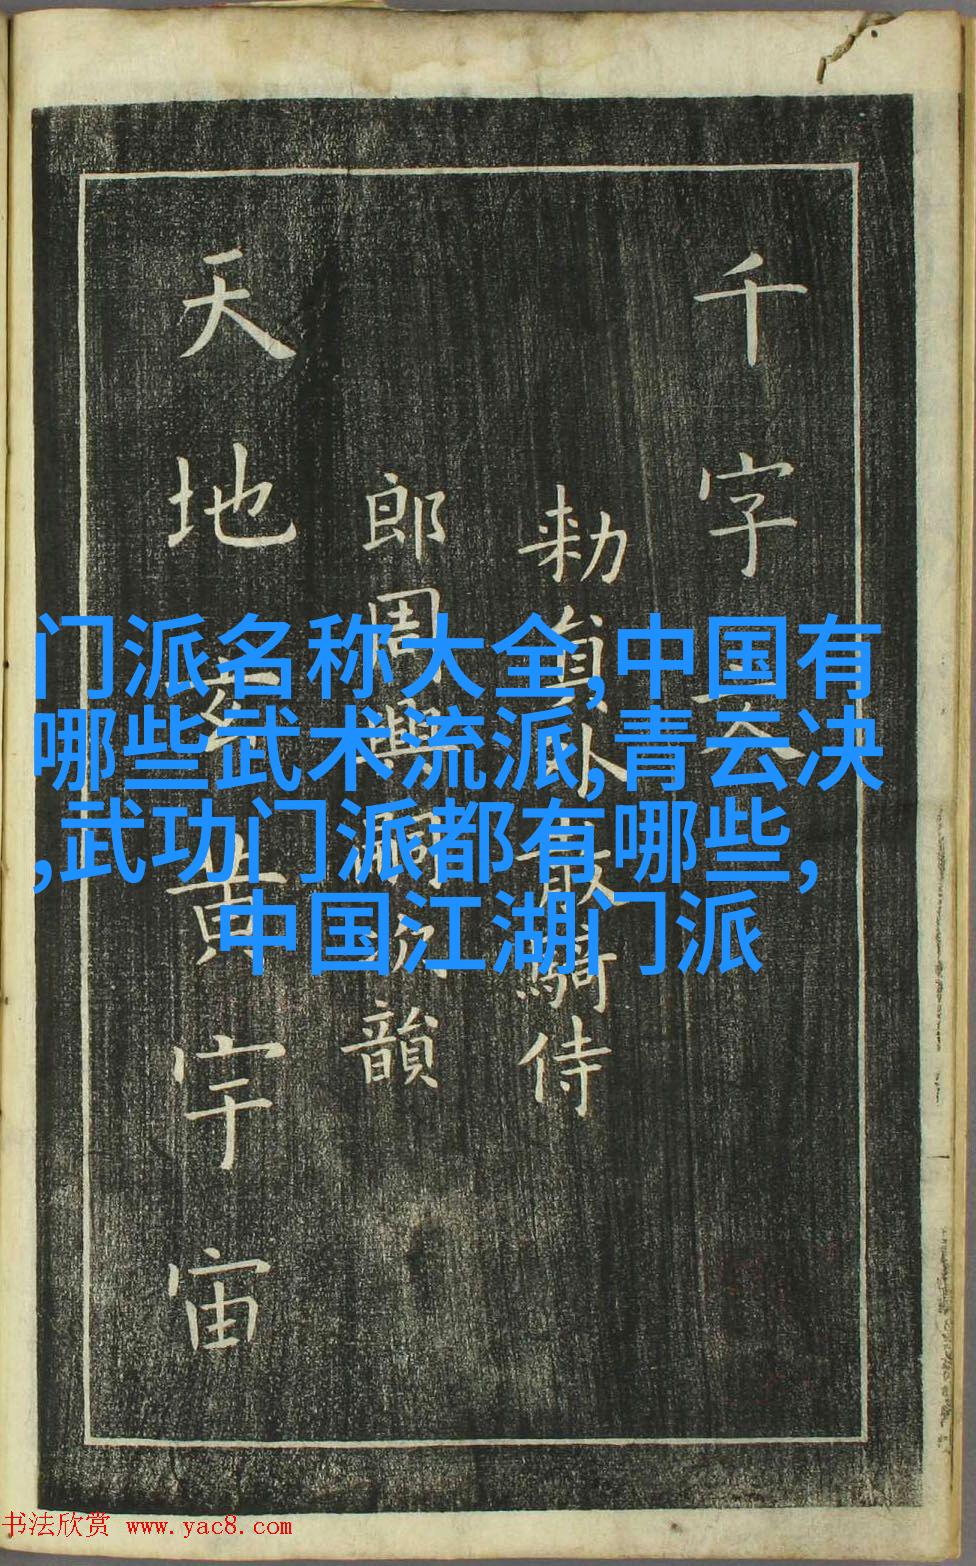 千字文
勑員外散騎侍
郎周興嗣次韻
天地玄黃宇宙
门派名称大全,中国有
哪些武术流派,青云决
,武功门派都有哪些,
中国江湖门派
书法欣赏 www.yac8.com